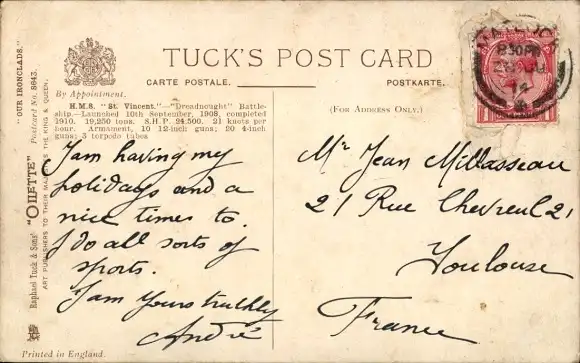 TUCK'S POST CARD
CARTE POSTALE.
POSTKARTE.
By Appointment.
H.M.S. "St. Vincent."—"Dreadnought" Battle-
ship—Launched 10th September, 1908, completed
1910. 19,250 tons. S.H.P. 24,500. 21 knots per
hour. Armament, 10 12-inch guns; 20 4-inch
guns; 3 torpedo tubes
(FOR ADDRESS ONLY.)
"OUR IRONCLADS."
Postcard No. 8643.
Raphael Tuck & Sons' "OILETTE"
ART PUBLISHERS TO THEIR MAJESTIES THE KING & QUEEN.
I am having my
holidays and a
nice times to.
I do all sorts of
sports.
I am Yours truthly
André
Mr Jean Millasseau
21 Rue Chevreul 21
Toulouse
France
8 30 PM
14
Printed in England.